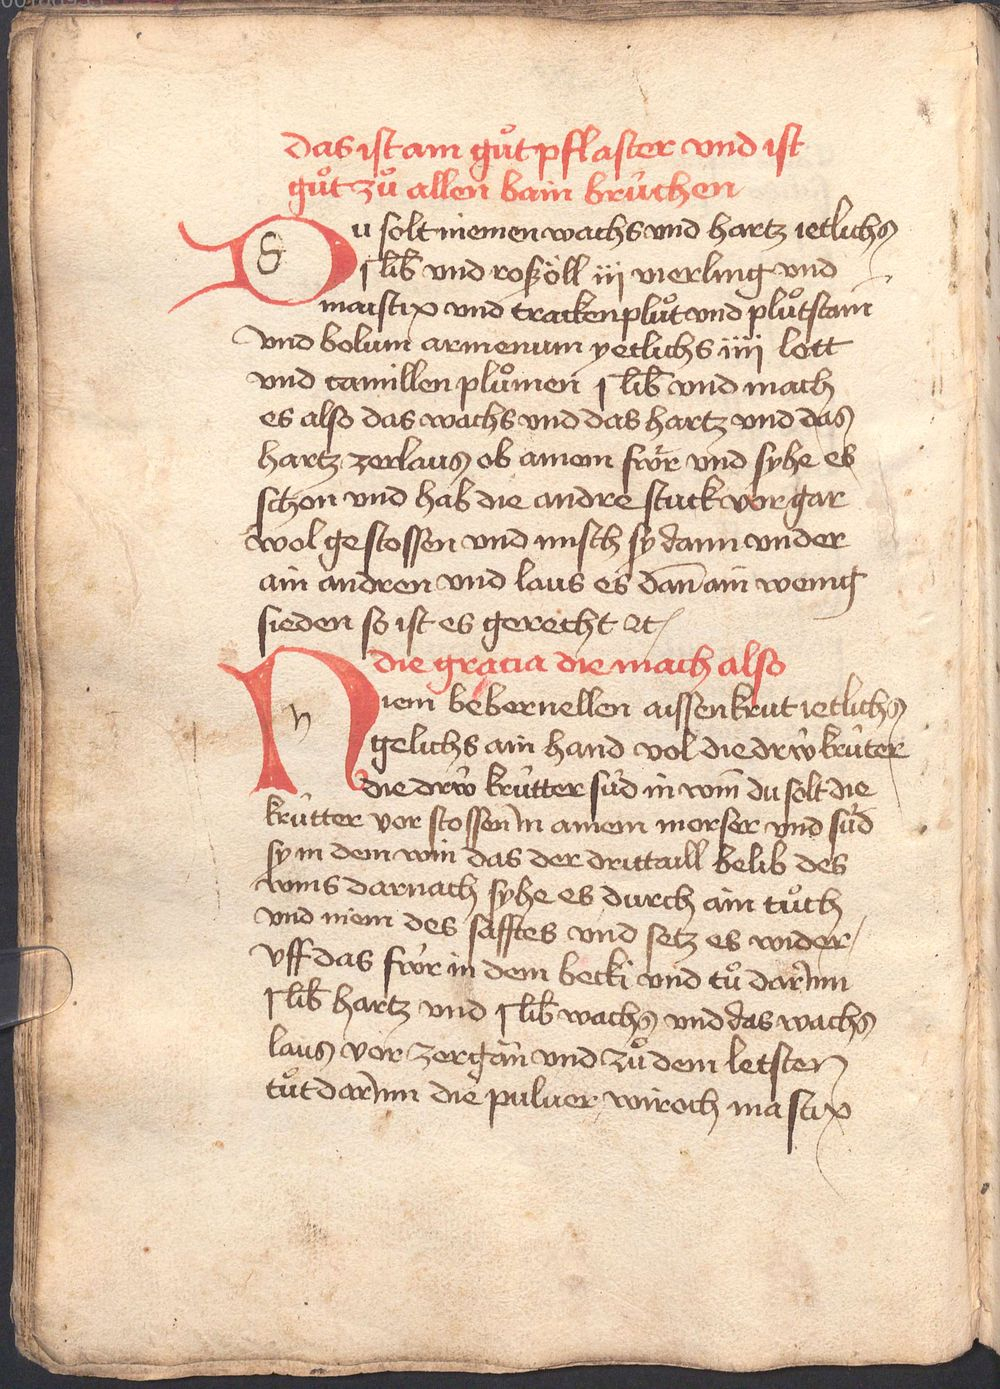 das ist ain guͦt pflaster vnd ist
guͦt zuͦ allen bain bruͤchen
Du solt niemen wachs vnd hartz ietlichs
j lib vnd rosöll iij vierling vnd
mastix vnd tracken pluͦt vnd pluͦtstain
vnd bolum armenum yetlichs iiij lott
vnd camillen pluͦmen j lib vnd mach
es also das wachs vnd das hartz vnd das
hartz zerlaus ob ainem fwͤr vnd syhe es
schon vnd hab die andre stuck vor gar
wol gestossen vnd misch sy dann vnder
ain andren vnd laus es dan̄ ain wenig
sieden so ist es gerecht ⁊c
die gracia die mach also
Niem bebernellen aissenkrut ietlichs
gelichs ain hand vol die drẅ krüter
die drẅ krütter süd in win du solt die
krütter vor stossen in ainem morser vnd süd
sy in dem win das der drittaill belib des
wins darnach syhe es durch ain tuͦch
vnd niem des safftes vnd setz es wider
vff das fwͤr in dem becki vnd tuͦ darinn
j lib hartz vnd j lib wachs vnd das wachs
laus vor zergān vnd zuͦ dem letsten
tuͦt darinn die puluer wiroch mastix